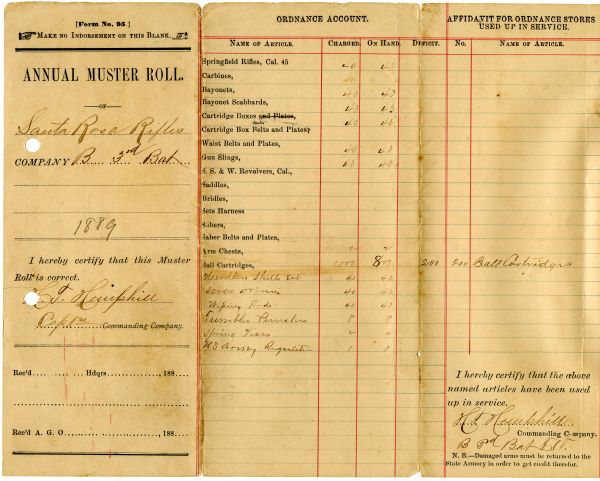 [Form No. 95.]
MAKE NO INDORSEMENT ON THIS BLANK.
ANNUAL MUSTER ROLL.
—OF—
Santa Rosa Rifles
COMPANY B 3rd Bat
1889
I hereby certify that this Muster
Roll is correct.
Commanding Company.
Rec'd Hdqrs. 188
Rec'd A. G. O. 188
ORDNANCE ACCOUNT.
NAME OF ARTICLE. CHARGED. ON HAND. DEFICIT.
Springfield Rifles, Cal. 45 40 40
Carbines,
Bayonets, 40 40
Bayonet Scabbards, 40 40
Cartridge Boxes and Plates, 40 40
Cartridge Box Belts and Plates,
Waist Belts and Plates, 40 40
Gun Slings, 40 40
S. S. & W. Revolvers, Cal.,
Saddles,
Bridles,
Sets Harness
Sabers,
Saber Belts and Plates,
Arm Chests, 2 2
Ball Cartridges, 1000 800 200
40 40
Screw Drivers 40 40
Wiping Rods 40 40
Tumbler Punches 8 8
Spring Vises 2 2
US Army Regulation 1 1
AFFIDAVIT FOR ORDNANCE STORES
USED UP IN SERVICE.
No. NAME OF ARTICLE.
200 Ball Cartridges
I hereby certify that the above
named articles have been used
up in service.
Commanding Company.
B 3rd Bat
N. B.—Damaged arms must be returned to the
State Armory in order to get credit therefor.